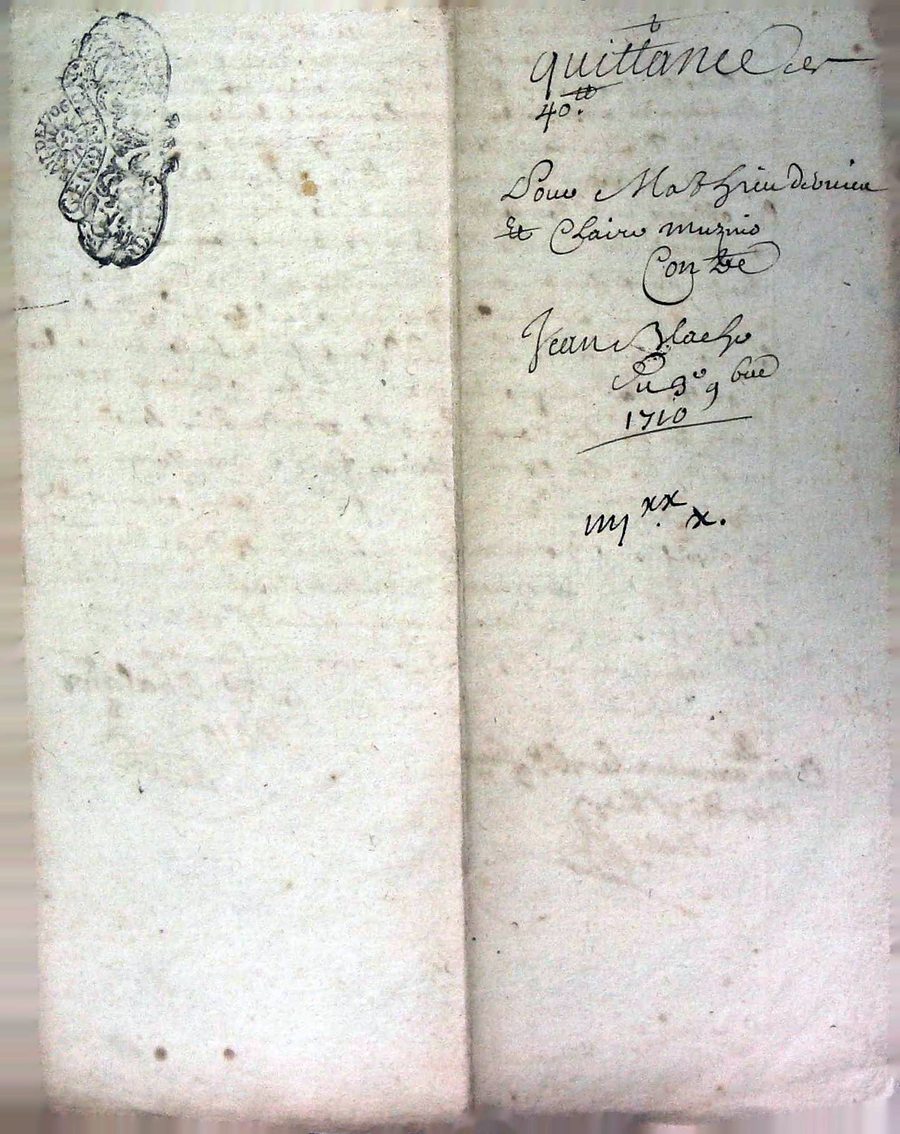 quittance de
40.tt
Pour Mathieu
Et Claire muzino
Contre
Jean Blache
Du 3e 9bre
1710
iiijxx x.